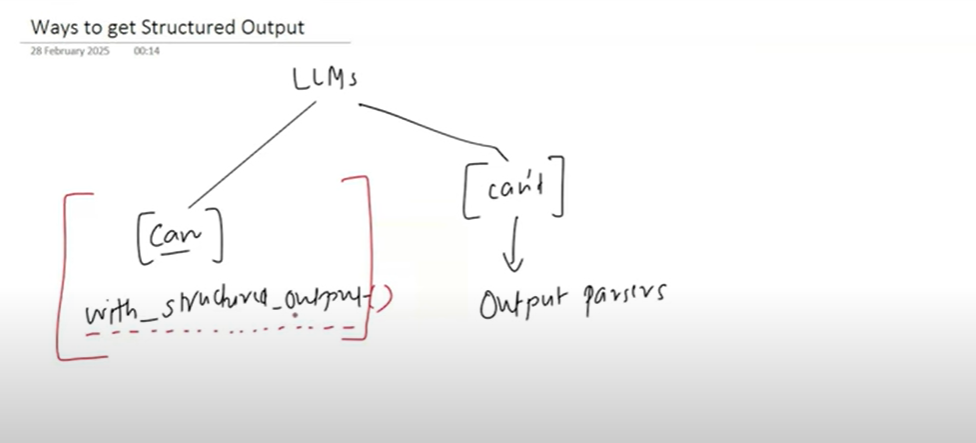 Ways to get Structured Output
28 February 2025 00:14
LLMs
[can't]
[Can]
with_structured_output()
Output parsers